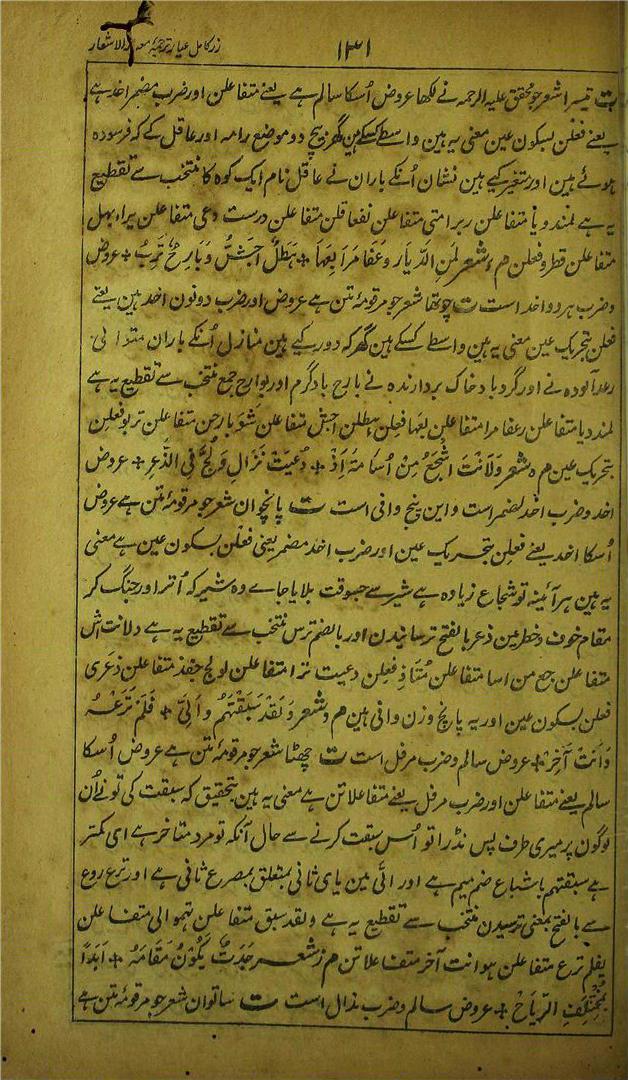 زر کامل عیار ترجمۂ معیار الاشعار
۱۳۱
ت تیسرا شعر جو محقق علیہ الرحمہ نے لکھا عروض اُسکا سالم ہے یعنے متفاعلن اور ضرب مضمر اخذ ہے
یعنے فعلن بسکون عین معنی یہ ہین واسطے کسکے ہین گھر بیچ دو موضع رامہ اور عاقل کے کہ فرسودہ
ہوئے ہین اور متغیر کیے ہین نشان اُنکے باران نے عاقل نام ایک کوہ کا منتخب سے تقطیع
یہ ہے لمندویا متفاعلن ربرامتی متفاعلن نفعاقلن متفاعلن درست وعی متفاعلن یراہبہل
متفاعلن قطرو فعلن م شعر لمَنِ الدِّیَار وَعَفَا مَرَابِعَہَا ٭ ہَطَلٌ اَجَشُّ وَبَارِحٌ تَرِبُ ٭ عروض
وضرب ہر دو اخذ است ت چوتھا شعر جو مرقومۂ متن ہے عروض اور ضرب دونون اخذ ہین یعنے
فعلن بتحریک عین معنی یہ ہین واسطے کسکے ہین گھر کہ دور کیے ہین منازل اُنکے باران متواتی
رعد آلودہ نے اور گردباد خاک بردارندہ نے بارح بادگرم اور بوارح جمع منتخب سے تقطیع یہ ہے
لمندیا متفاعلن رعفامرا متفاعلن بعہا فعلن ہطلن اجش متفاعلن شوبارحن متفاعلن تربو فعلن
بتحریک عین م شعر وَلَاَنْتَ اَشْجَعُ مِنْ اُسَامَةَ اِذْ ٭ دُعِیَتْ نَزَالِ وَلُجَّ فِی الذُّعِرِ ٭ عروض
اخذ وضرب اخذ لضمر است و این پنج وافی است ت پانچوان شعر جو مرقومۂ متن ہے عروض
اُسکا اخذ یعنے فعلن بتحریک عین اور ضرب اخذ مضمر یعنی فعلن بسکون عین ہے معنی
یہ ہین ہر آئینہ تو شجاع زیادہ ہے شیر سے جسوقت بلایا جاے وہ شیر کہ اُتر اور جنگ کر
مقام خوف وخطر مین ذعر بالفتح ترسانیدن اور بالضم ترس منتخب سے تقطیع یہ ہے ولانت اش
متفاعلن جع من اسا متفاعلن مُتَاذِ فعلن دعیت نزا متفاعلن لولج جفذ متفاعلن ذعری
فعلن بسکون عین اور یہ پانچ وزن وافی ہین م شعر وَلَقَدْ سَبَقْتَہُم وَاِلَیَّ ٭ فَلِمَ نَزَعْتَ
وَاَنْتَ آخِرُ ٭ عروض سالم وضرب مرفل است ت چھٹا شعر جو مرقومۂ متن ہے عروض اُسکا
سالم یعنے متفاعلن اور ضرب مرفل یعنے متفاعلاتن ہے معنی یہ ہین بتحقیق کہ سبقت کی تونے اُن
لوگون پر میری طرف پس نڈرا تو اُس سبقت کرنے سے حال آنکہ تو مرد متاخر ہے ای کمتر
ہے سبقتہم باشباع ضم میم ہے اور الیَّ مین یای ثانی متعلق بمصرع ثانی ہے اور ترع روع
سے بالفتح بمعنی ترسیدن منتخب سے تقطیع یہ ہے ولقد سبق متفاعلن تہمو الی متفاعلن
یفلم ترع متفاعلن ہوانت آخر متفاعلاتن م شعر جَدَثٌ یَکُوْنُ مَقَامَہٗ ٭ اَبَدًا
بِمُخْتَلِفِ الرِّیَاحْ ٭ عروض سالم وضرب مذال است ت ساتوان شعر جو مرقومۂ متن ہے